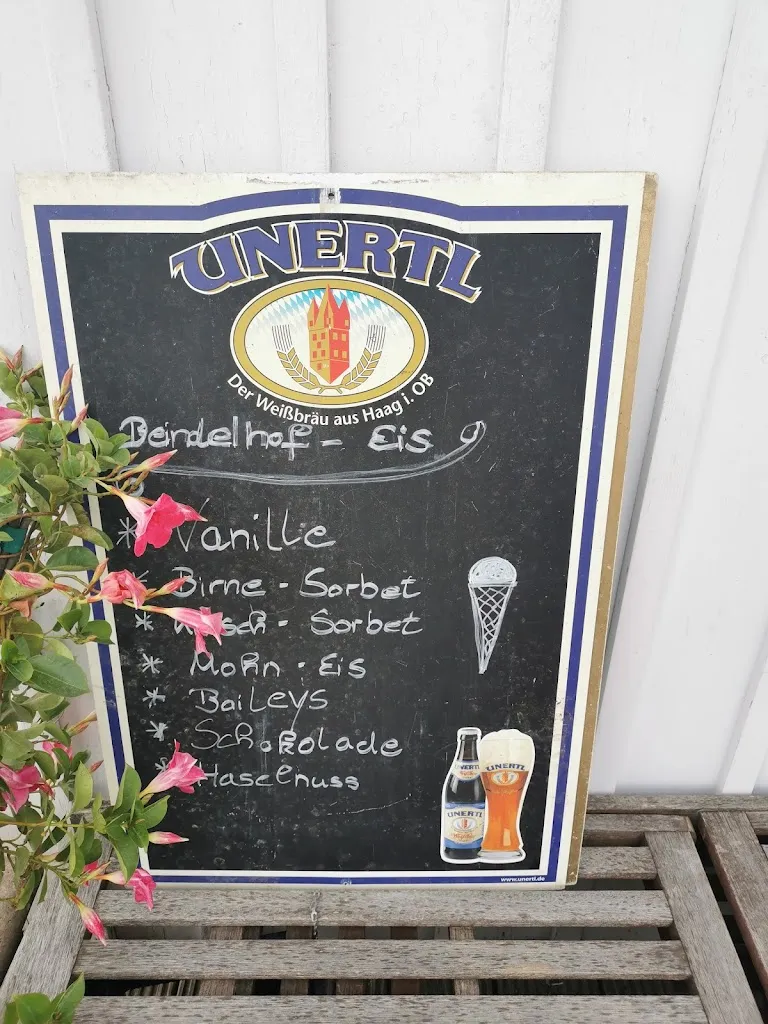 UNERTL
Der Weißbräu aus Haag i. OB
Beindelhof - Eis
* Vanille
* Birne - Sorbet
* - Sorbet
* Mohn - Eis
* Baileys
* Schokolade
* Haselnuss
UNERTL
UNERTL
UNERTL
www.unertl.de